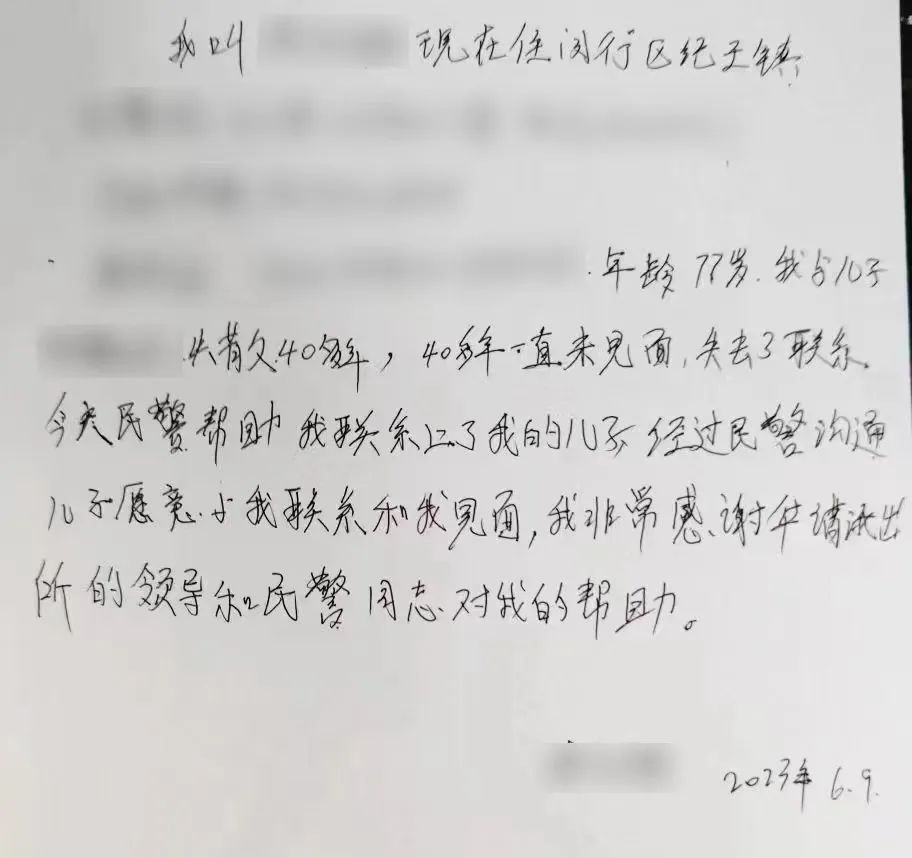 我叫 现在住闵行区纪王镇
年龄77岁.我与儿子
失散久40多年,40多年一直未见面,失去了联系.
今天民警帮助我联系上了我的儿子 经过民警沟通
儿子愿意与我联系和我见面,我非常感谢华漕派出
所的领导和民警同志对我的帮助。
2023年6.9.